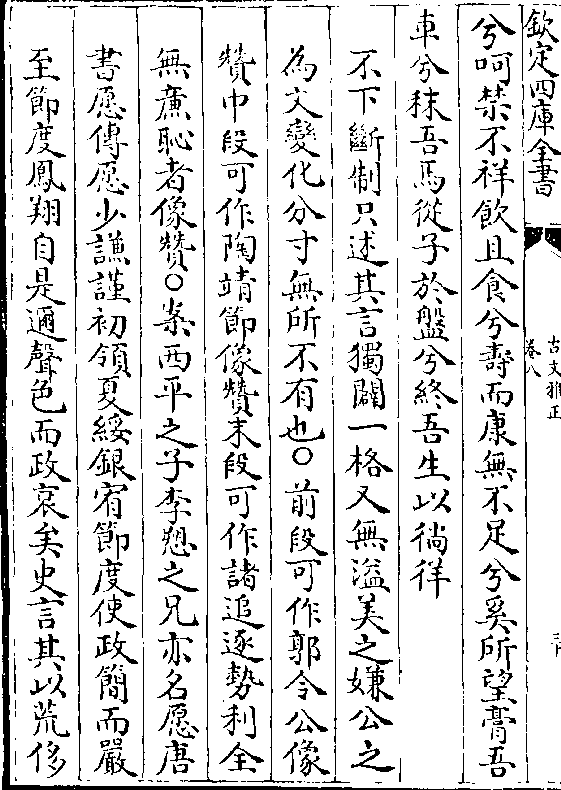 欽定四庫全書
古文雅正
卷八
兮呵禁不祥飲且食兮壽而康無不足兮奚所望膏吾
車兮秣吾馬從子於盤兮終吾生以徜徉
不下斷制只述其言獨闢一格又無溢美之嫌公之
為文變化分寸無所不有也○前段可作郭令公像
贊中段可作陶靖節像贊末段可作諸追逐勢利全
無亷恥者像贊○案西平之子李愬之兄亦名愿唐
書愿傳愿少謙謹初領夏綏銀宥節度使政簡而嚴
至節度鳳翔自是邇聲色而政衰矣史言其以荒侈